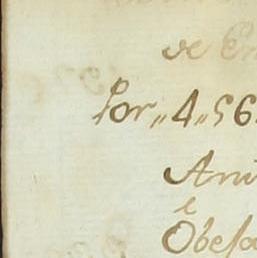 de En
Por,,4,,56
Ani
e
Obesa